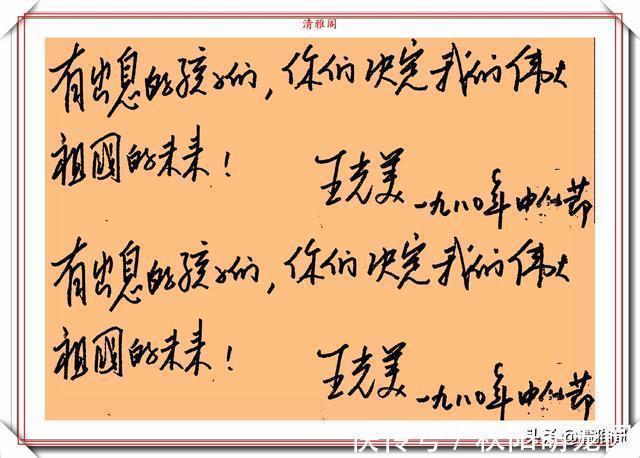 清雅阁
有出息的孩子们，你们决定我们伟大
祖國的未来！
王光美 一九八〇年中秋节
有出息的孩子们，你们决定我们伟大
祖國的未来！
王光美 一九八〇年中秋节
头条 @清雅阁
快传号 /